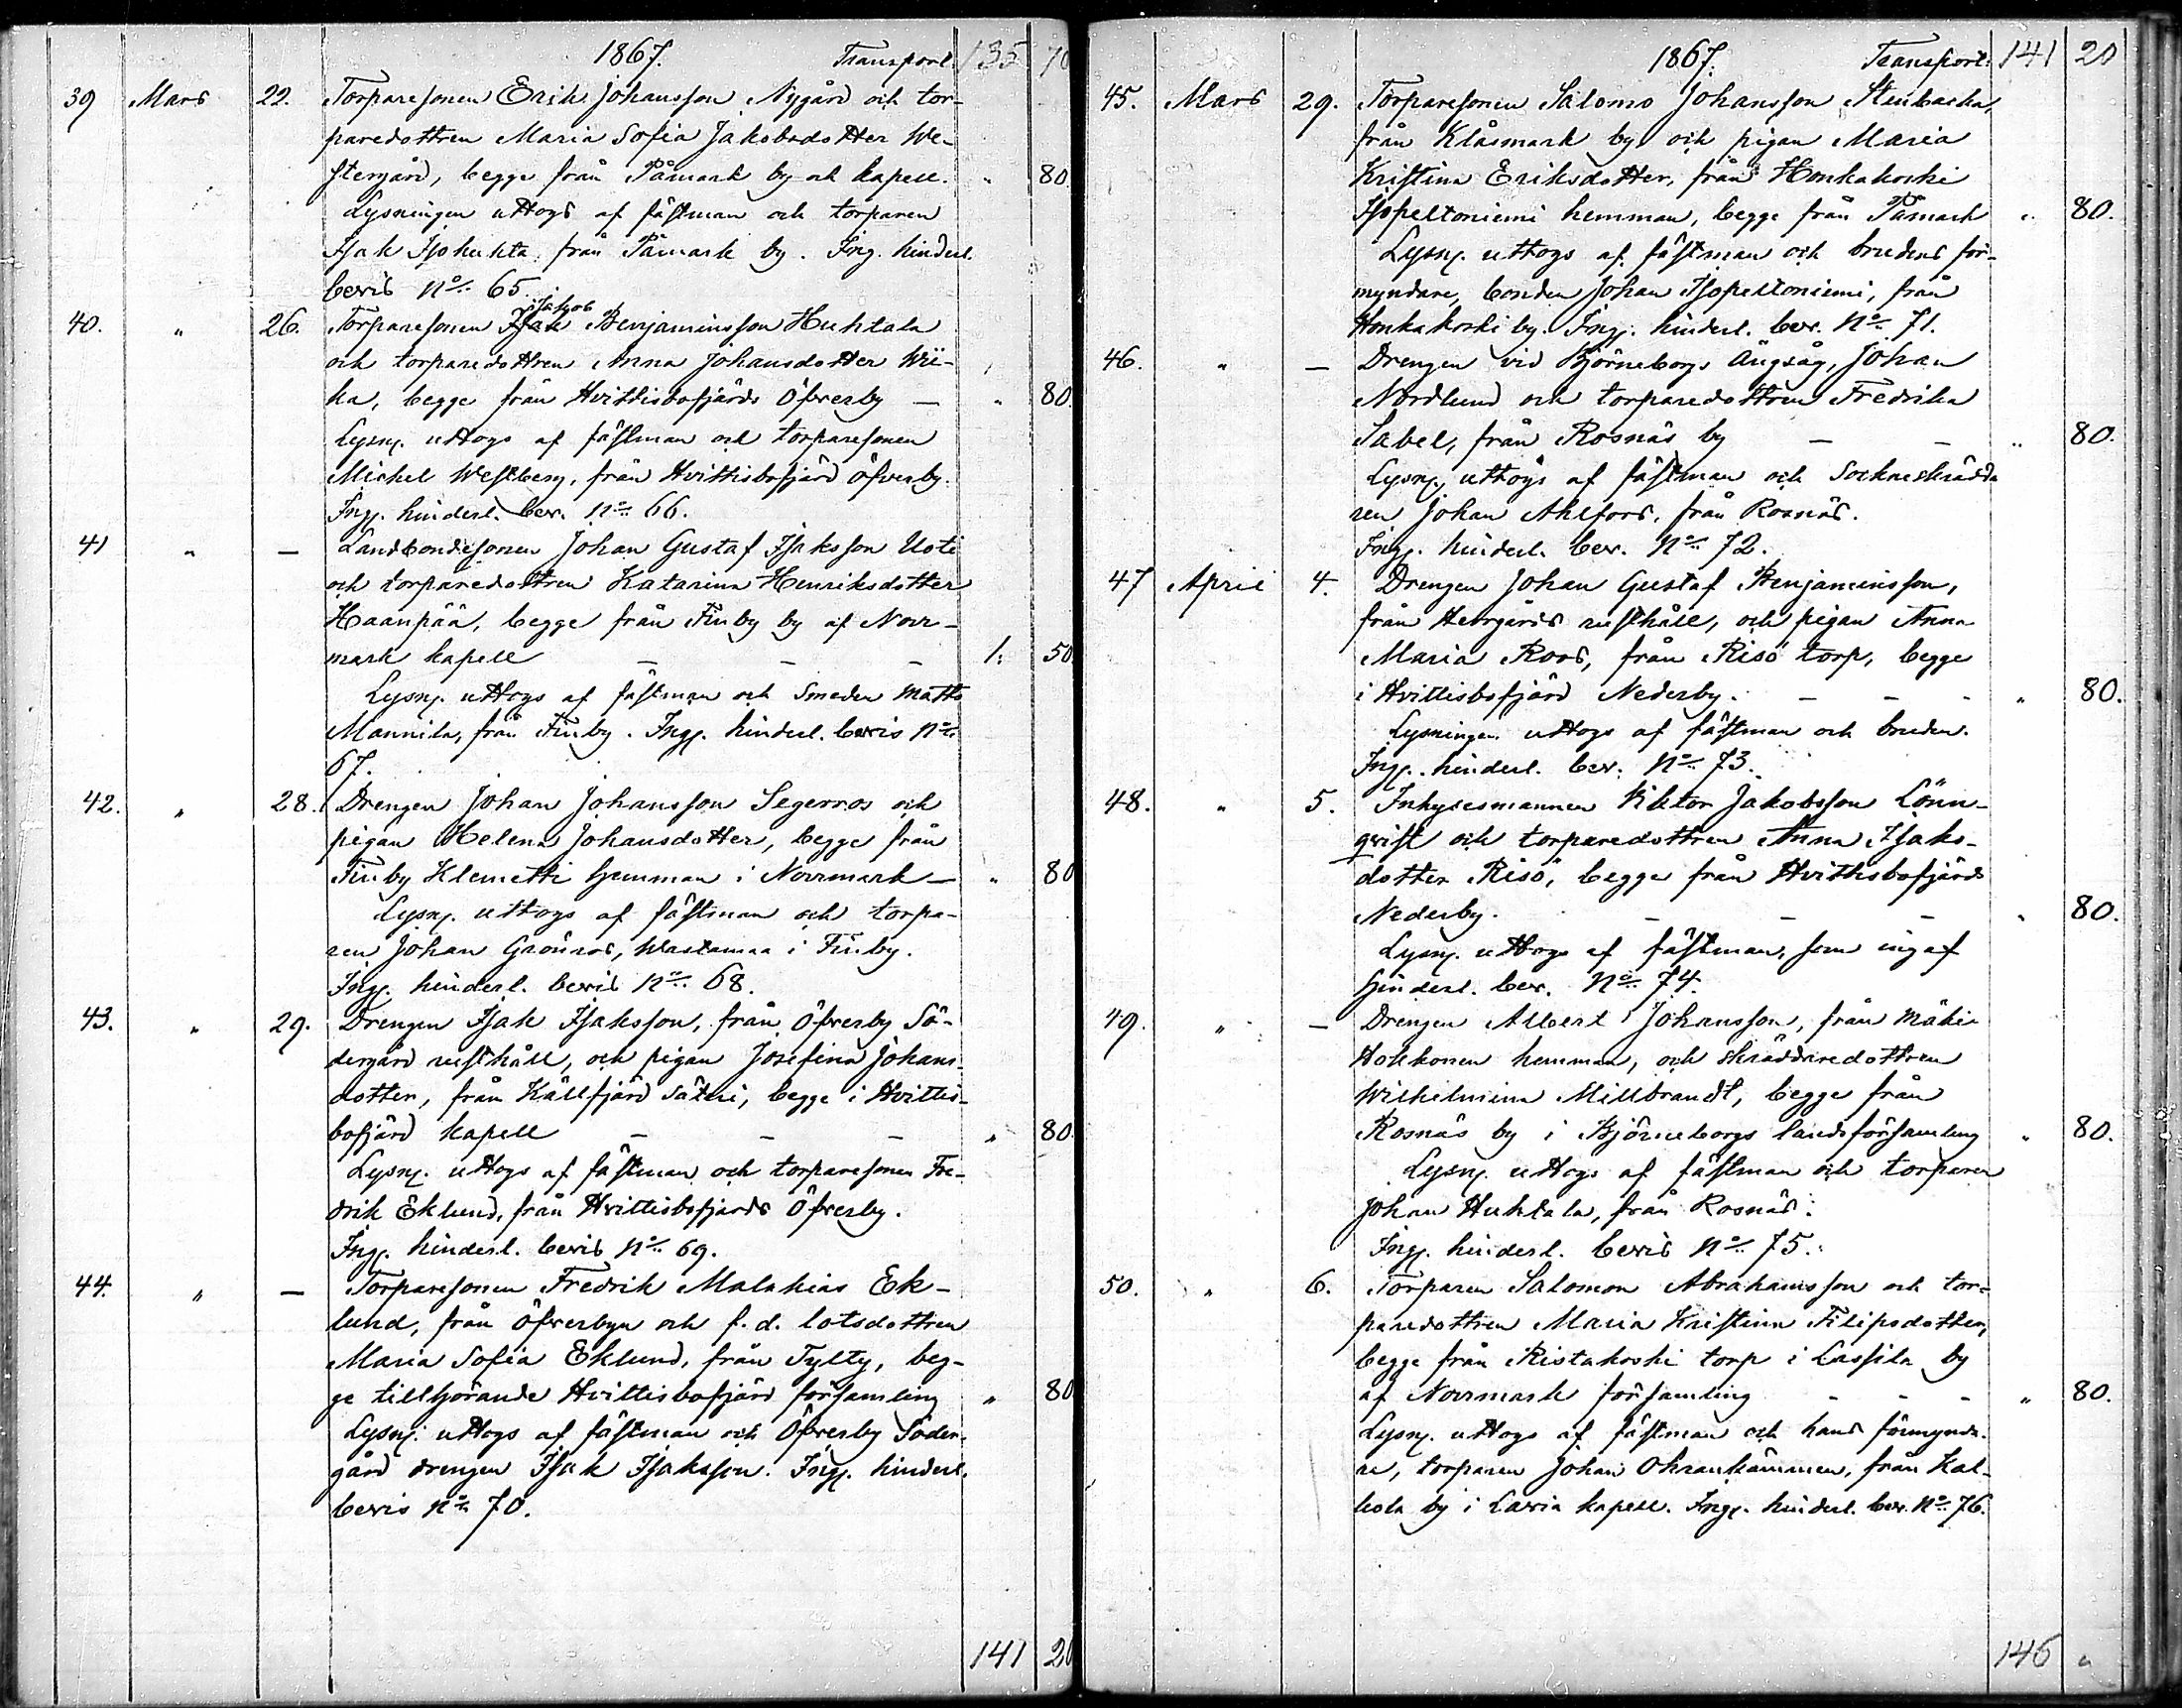 1867. Transport. 135 70
39 Mars 22. Torparesonen Erik Johansson Nygård och tor-
paredottren Maria Sofia Jakobsdotter We-
stergård, begge från Påmark by och kapell. " 80.
Lysningen uttogs af fästman och torparen
Isak Isohukta från Påmark by. Ing. hinderl.
bevis No 65.
40. " 26. Torparesonen Isak Jakob Benjaminsson Huhtala
och torparedottren Anna Johansdotter Wii-
ka, begge från Hvittisbofjärds Öfverby — " 80.
Lysng. uttogs af fästman och torparesonen
Michel Westberg, från Hvittisbofjärd öfverby.
Ingg. hinderl. bev. No 66.
41 " — Landbondesonen Johan Gustaf Isaksson Uoti
och torparedottren Katarina Henriksdotter
Haanpää, begge från Finby by af Norr-
mark kapell — — — 1: 50
Lysng. uttogs af fästman och Smeden Matts
Mannila, från Finby. Ingg. hinderl. bevis No
67.
42. " 28. Drengen Johan Johansson Segerros och
pigan Helena Johansdotter, begge från
Finby Klemetti hemman i Norrmark — " 80
Lysng. uttogs af fästman och torpa-
ren Johan Grönros, Wastamaa i Finby.
Ingg. hinderl. bevis No 68.
43. " 29. Drengen Isak Isaksson, från Öfverby Sö-
dergård rusthåll, och pigan Josefina Johans-
dotter, från Källfjärd Säteri, begge i Hvittis-
bofjärd kapell — — — " 80
Lysng. uttogs af fästman och torparesonen Fre-
drik Eklund, från Hvittisbofjärds Öfverby.
Ingg. hinderl. bevis No 69.
44. " — Torparesonen Fredrik Malakias Ek-
lund, från Öfverbyn och f. d. lotsdottren
Maria Sofia Eklund, från Tylty, beg-
ge tillhörande Hvittisbofjärd församling " 80
Lysng. uttogs af fästman och Öfverby Söder-
gård drengen Isak Isaksson. Ingg. hinderl.
bevis No 70.
141 20
1867. Transport. 141 20
45. Mars 29. Torparesonen Salomo Johansson Stenbacka,
från Klåsmark by och pigan Maria
Kristina Eriksdotter, från Honkakoski
Isopeltoniemi hemman, begge från Påmark " 80.
Lysng. uttogs af fästman och brudens för-
myndare, bonden Johan Isopeltoniemi, från
Honkakoski by. Ingg. hinderl. bev. No 71.
46. " — Drengen vid Björneborgs Ångsåg, Johan
Nordlund och torparedottren Fredrika
Sabel, från Rosnäs by — — " 80.
Lysng. uttogs af fästman och Sockneskrädda
ren Johan Ahlfors, från Rosnäs.
Ingg. hinderl. bev. No 72.
47 April 4. Drengen Johan Gustaf Benjaminsson,
från Herrgårds rusthåll, och pigan Anna
Maria Roos, från Risö torp, begge
i Hvittisbofjärd Nederby. — — - " 80.
Lysningen uttogs af fästman och bruden.
Ingg. hinderl. bev. No 73.
48. " 5. Inhysesmannen Viktor Jakobsson Lönn-
qvist och torparedottren Anna Isaks-
dotter Risö, begge från Hvittisbofjärds
Nederby. — — — " 80.
Lysng. uttogs af fästman, som ingaf
hinderl. bev. No 74.
49. " — Drengen Albert Johansson, från Mäki
Hokkonen hemman, och skräddaredottren
Wilhelmina Millbrandt, begge från
Rosnäs by i Björneborgs landsförsamling " 80.
Lysng. uttogs af fästman och torparen
Johan Huhtala, från Rosnäs.
Ingg. hinderl. bevis No 75.
50. " 6. Torparen Salomon Abrahamsson och tor-
paredottren Maria Kristina Filipsdotter,
begge från Ristakoski torp i Lassila by
af Norrmark församling - - - " 80.
Lysng. uttogs af fästman och hans förmynda-
re, torparen Johan Ohrankämmen, från Kal-
kola by i Lavia kapell. Ingg. hinderl. bev. No 76.
146 "